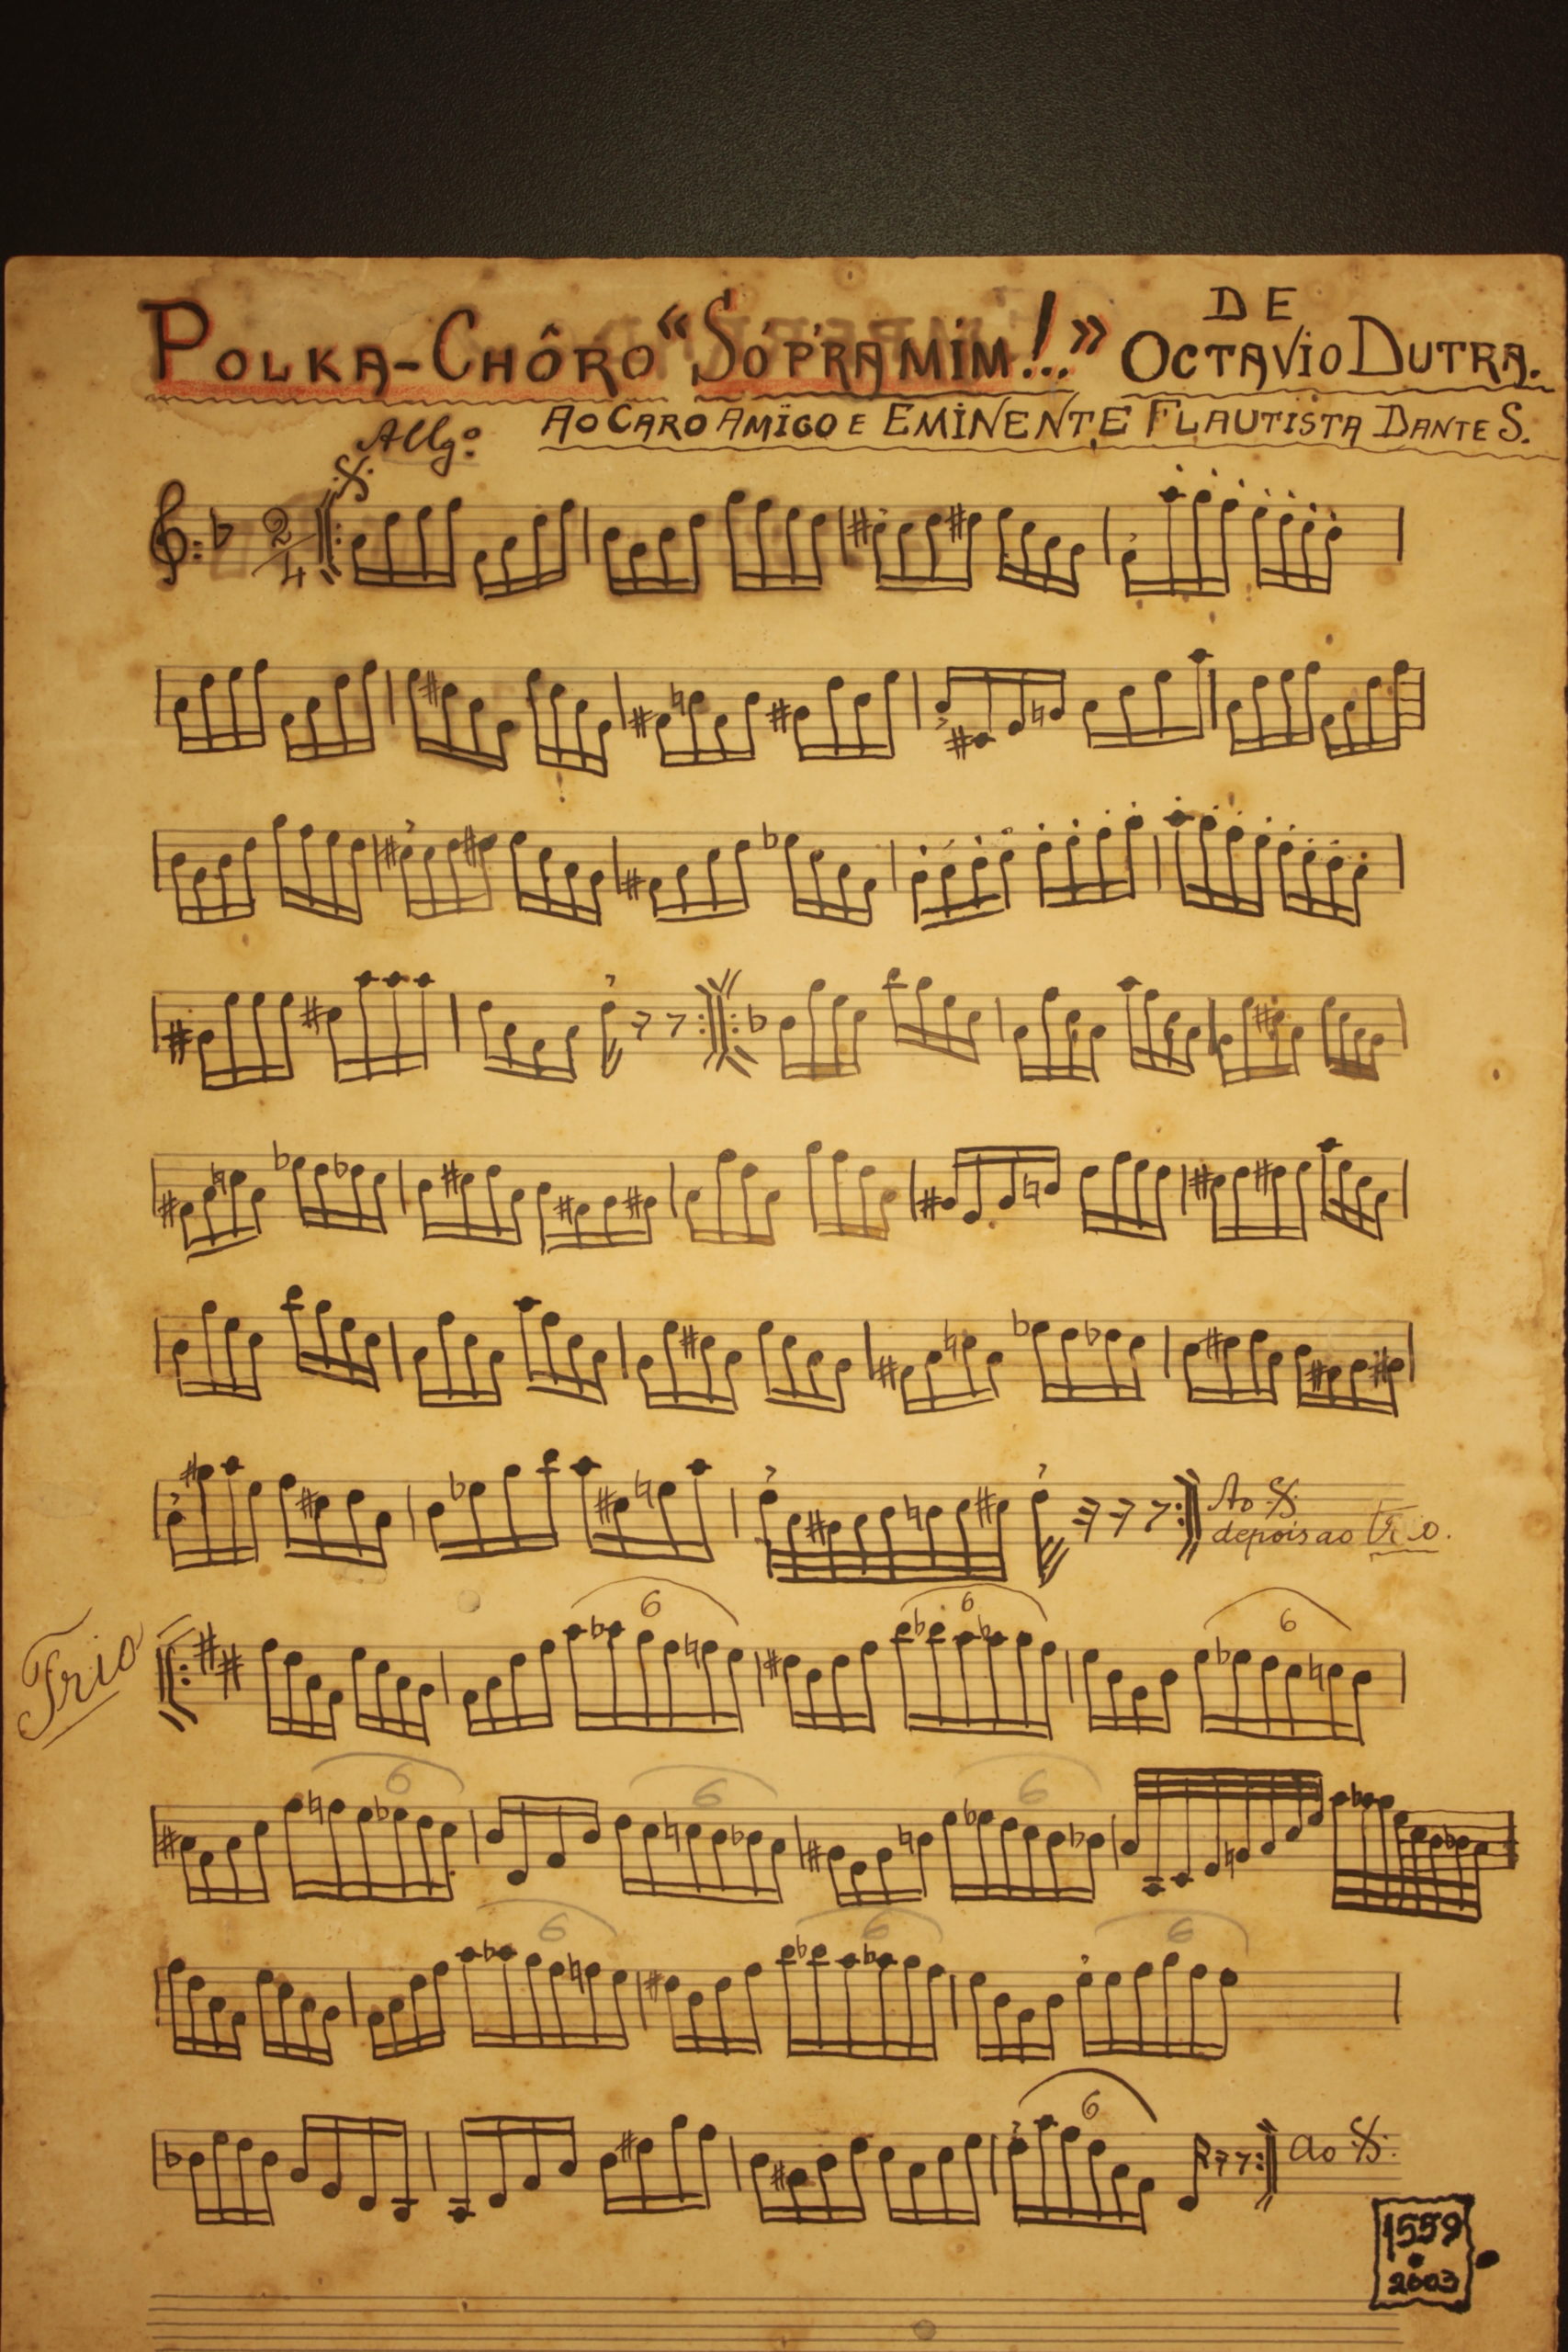 POLKA-CHÔRO "SÓ P'RA MIM!..." DE OCTAVIO DUTRA.
AO CARO AMIGO E EMINENTE FLAUTISTA DANTE S.
Allgº
2/4
Ao
depois ao Trio.
6 6 6
Trio
6 6 6
6 6 6
6
ao
1559
2003